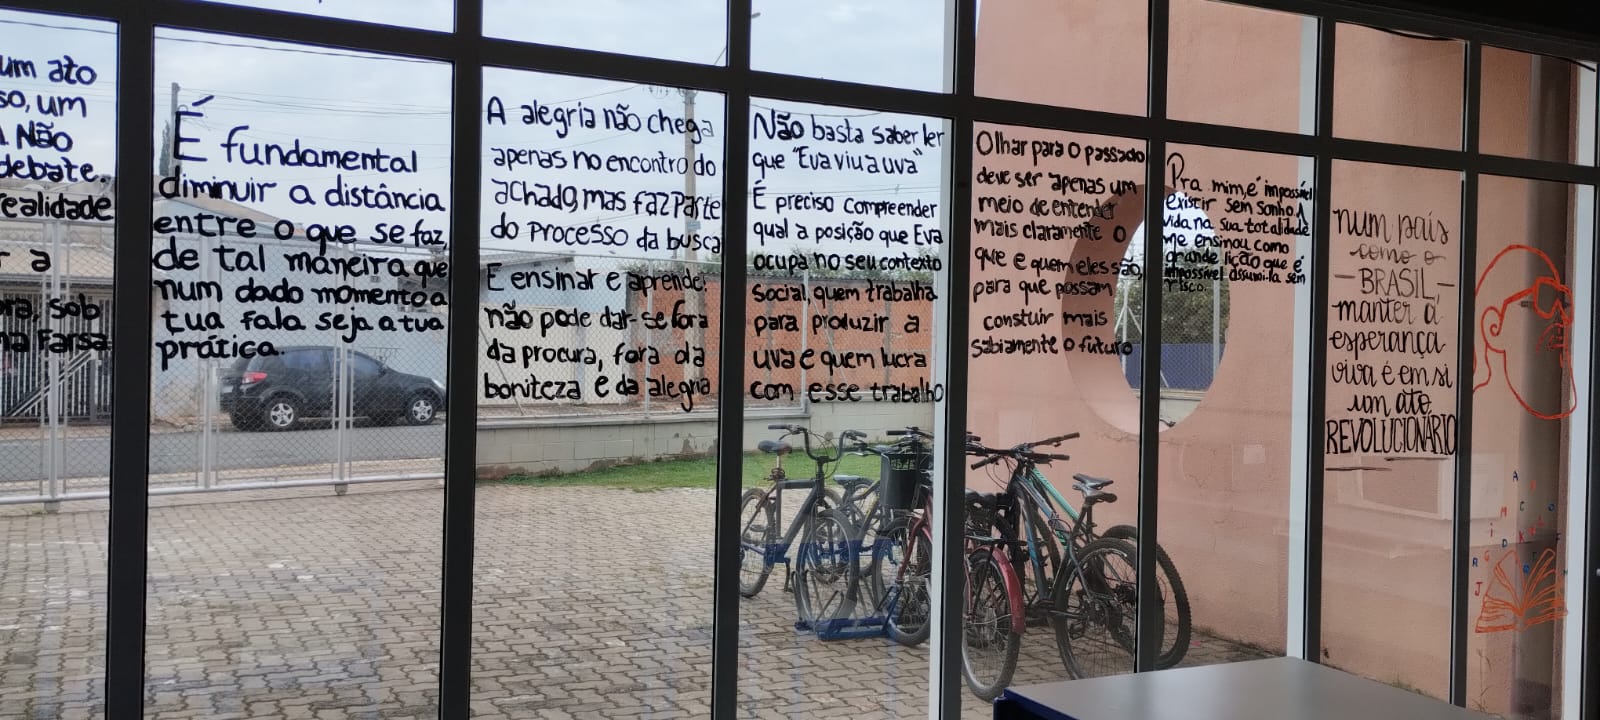 um ato
so, um
Não
debate.
realidade
r a
ora, sob
na Farsa
É fundamental
diminuir a distância
entre o que se faz,
de tal maneira que
num dado momento a
tua fala seja a tua
prática.
A alegria não chega
apenas no encontro do
achado, mas faz parte
do processo da busca
E ensinar e aprender
não pode dar-se fora
da procura, fora da
boniteza e da alegria
Não basta saber ler
que "Eva viu a uva"
É preciso compreender
qual a posição que Eva
ocupa no seu contexto
Social, quem trabalha
para produzir a
uva e quem lucra
com esse trabalho
Olhar para o passado
deve ser apenas um
meio de entender
mais claramente o
que e quem eles são,
para que possam
constuir mais
sabiamente o futuro
Pra mim, é impossível
existir sem sonho. A
vida na sua totalidade
me ensinou como
grande lição que é
impossível assumi-la sem
risco.
num país
como o
BRASIL,
manter a
esperança
viva é em si
um ato
REVOLUCIONÁRIO